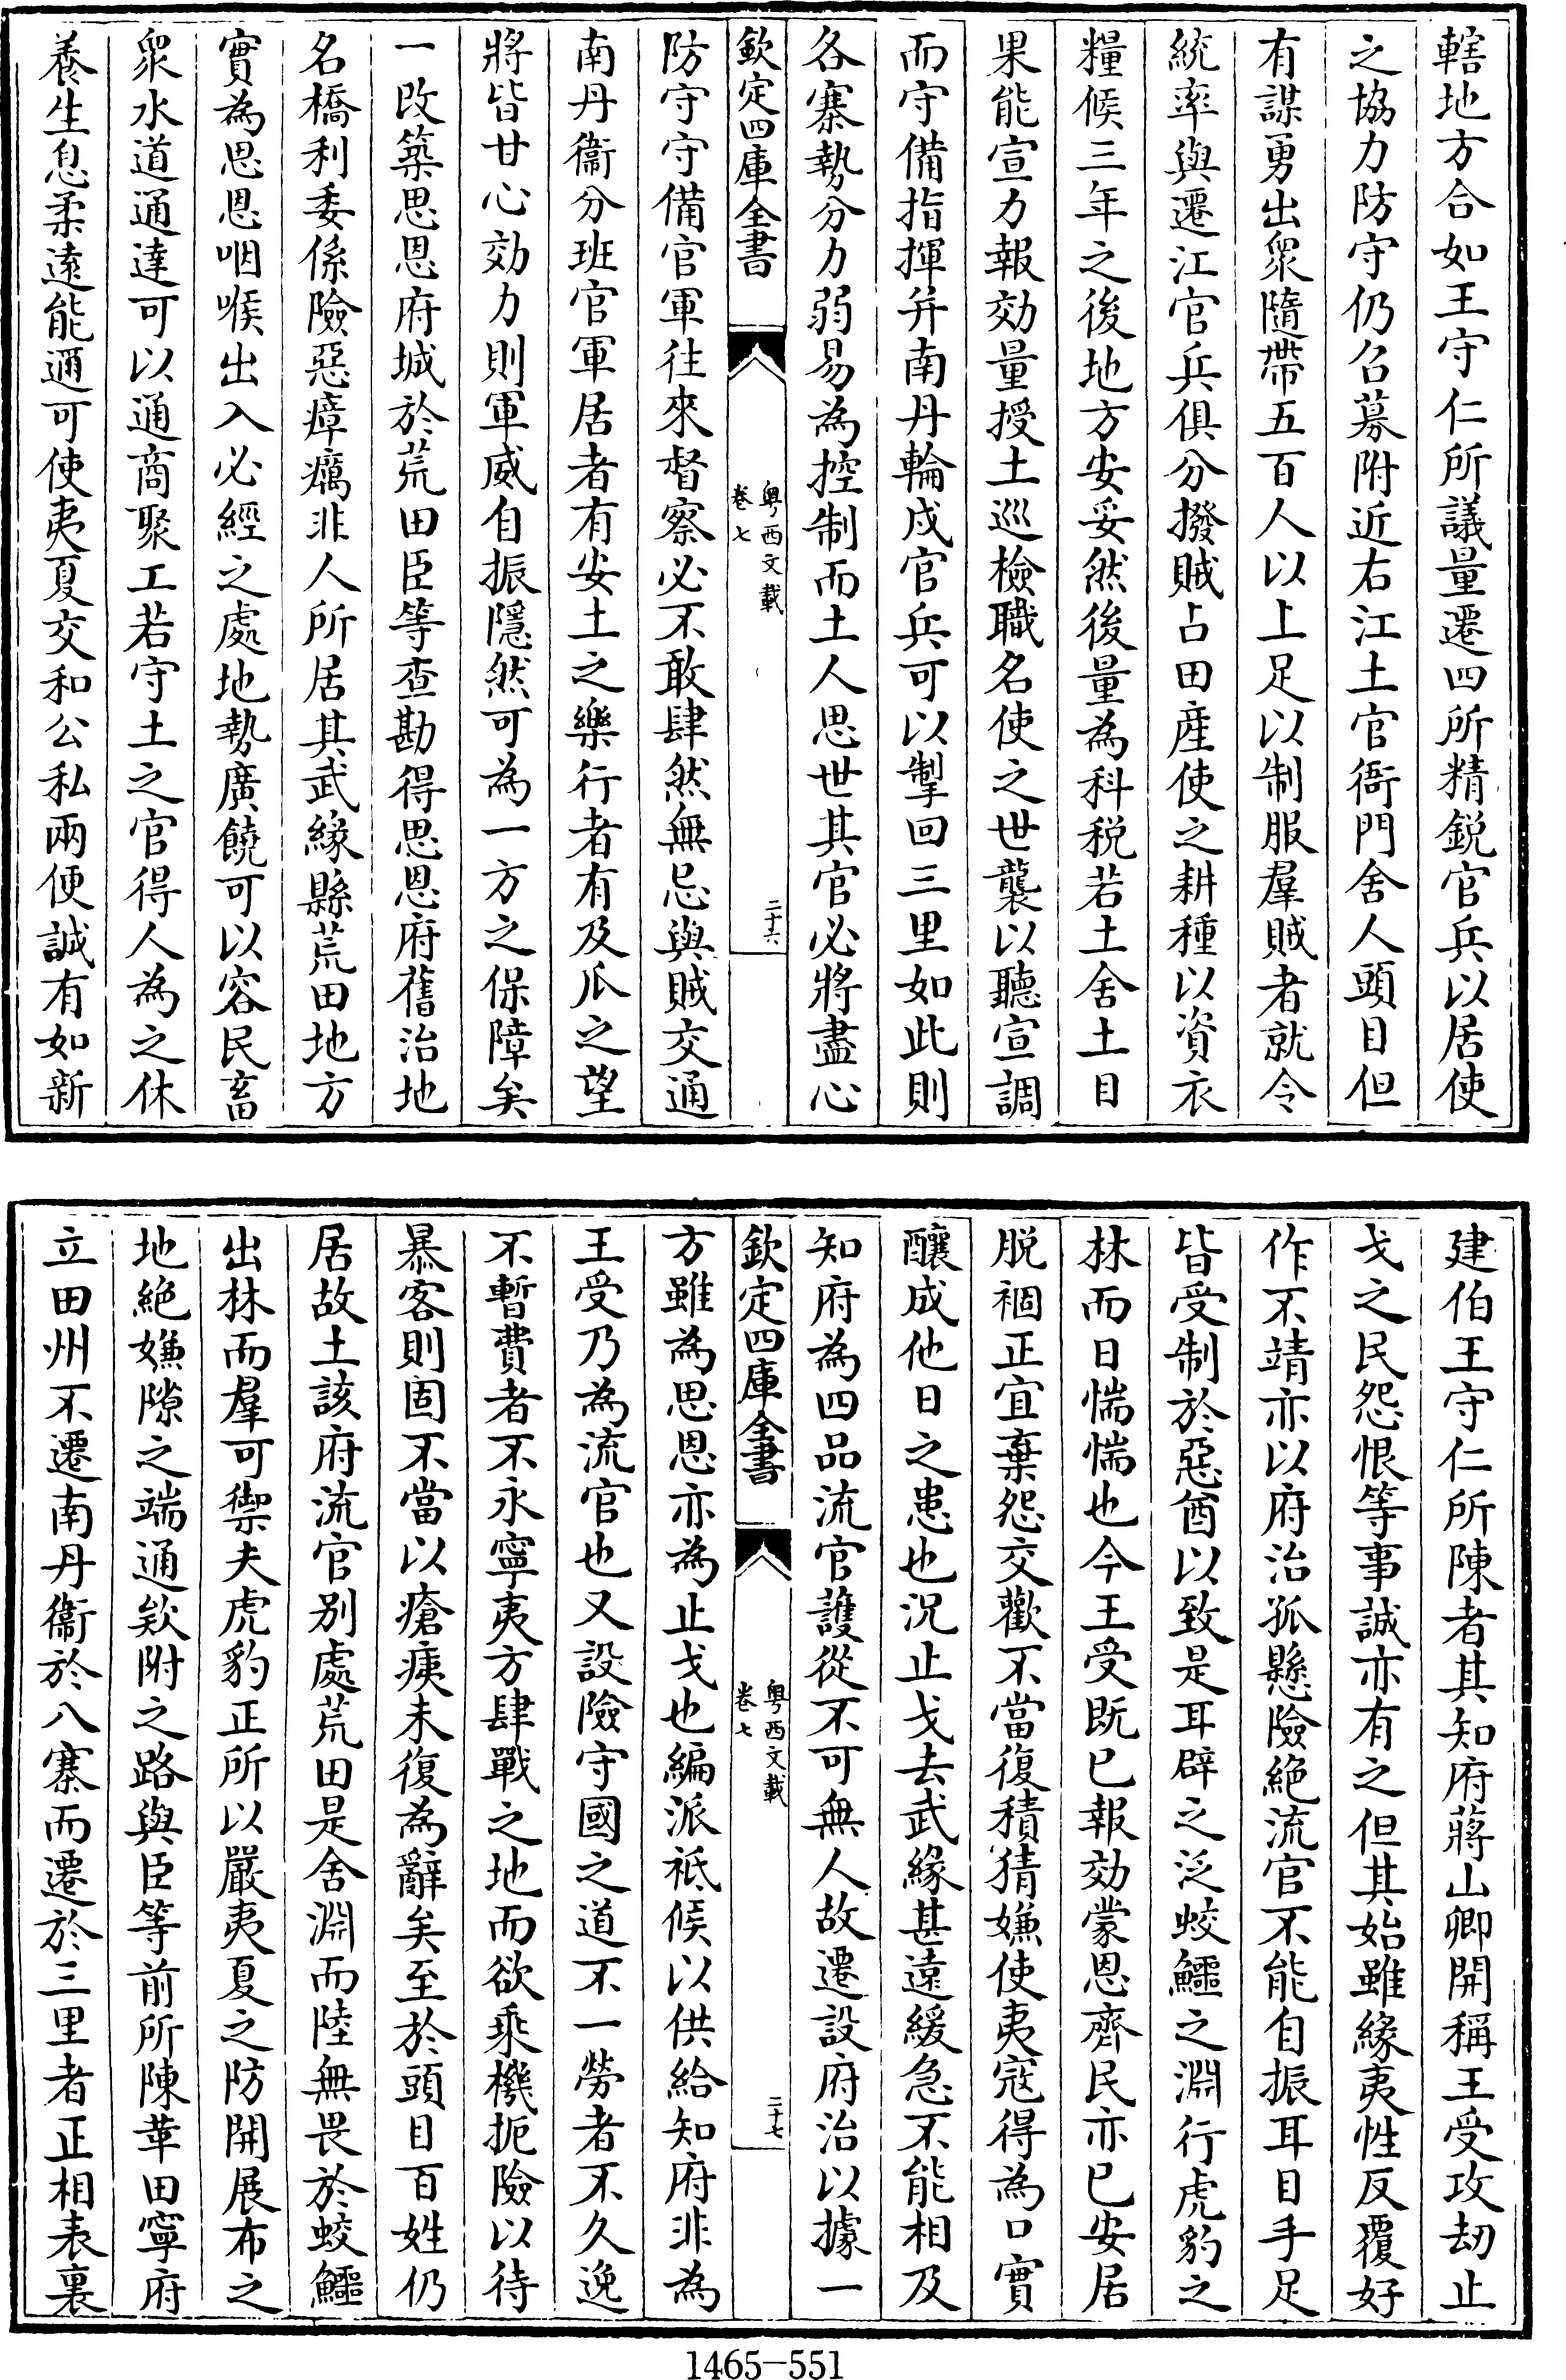 轄地方合如王守仁所議量遷四所精鋭官兵以居使
之協力防守仍召募附近右江土官衙門舍人頭目但
有謀勇出衆隨帶五百人以上足以制服羣賊者就令
統率與遷江官兵俱分撥賊占田産使之耕種以資衣
糧候三年之後地方安妥然後量為科税若土舍土目
果能宣力報効量授土巡檢職名使之世襲以聽宣調
而守備指揮并南丹輪戍官兵可以掣回三里如此則
各寨勢分力弱易為控制而土人思世其官必將盡心
欽定四庫全書
粤西文載
卷七
二十六
防守守備官軍往來督察必不敢肆然無忌與賊交通
南丹衞分班官軍居者有安土之樂行者有及瓜之望
將皆甘心効力則軍威自振隱然可為一方之保障矣
一改築思恩府城於荒田臣等查勘得思恩府舊治地
名橋利委係險惡瘴癘非人所居其武緣縣荒田地方
實為思恩咽喉出入必經之處地勢廣饒可以容民畜
衆水道通達可以通商聚工若守土之官得人為之休
養生息柔遠能邇可使夷夏交和公私兩便誠有如新
建伯王守仁所陳者其知府蔣山卿開稱王受攻刼止
戈之民怨恨等事誠亦有之但其始雖緣夷性反覆好
作不靖亦以府治孤懸險絶流官不能自振耳目手足
皆受制於惡酋以致是耳辟之泛蛟鱷之淵行虎豹之
林而日惴惴也今王受既已報効蒙恩齊民亦已安居
脱褵正宜棄怨交歡不當復積猜嫌使夷冦得為口實
釀成他日之患也况止戈去武緣甚遠緩急不能相及
知府為四品流官護從不可無人故遷設府治以據一
欽定四庫全書
粤西文載
卷七
二十七
方雖為思恩亦為止戈也編派祇候以供給知府非為
王受乃為流官也又設險守國之道不一勞者不久逸
不暫費者不永寧夷方肆戰之地而欲乘機扼險以待
暴客則固不當以瘡痍未復為辭矣至於頭目百姓仍
居故土該府流官别處荒田是舍淵而陸無畏於蛟鱷
出林而羣可禦夫虎豹正所以嚴夷夏之防開展布之
地絶嫌隙之端通欵附之路與臣等前所陳革田寧府
立田州不遷南丹衞於八寨而遷於三里者正相表裏
1465-551